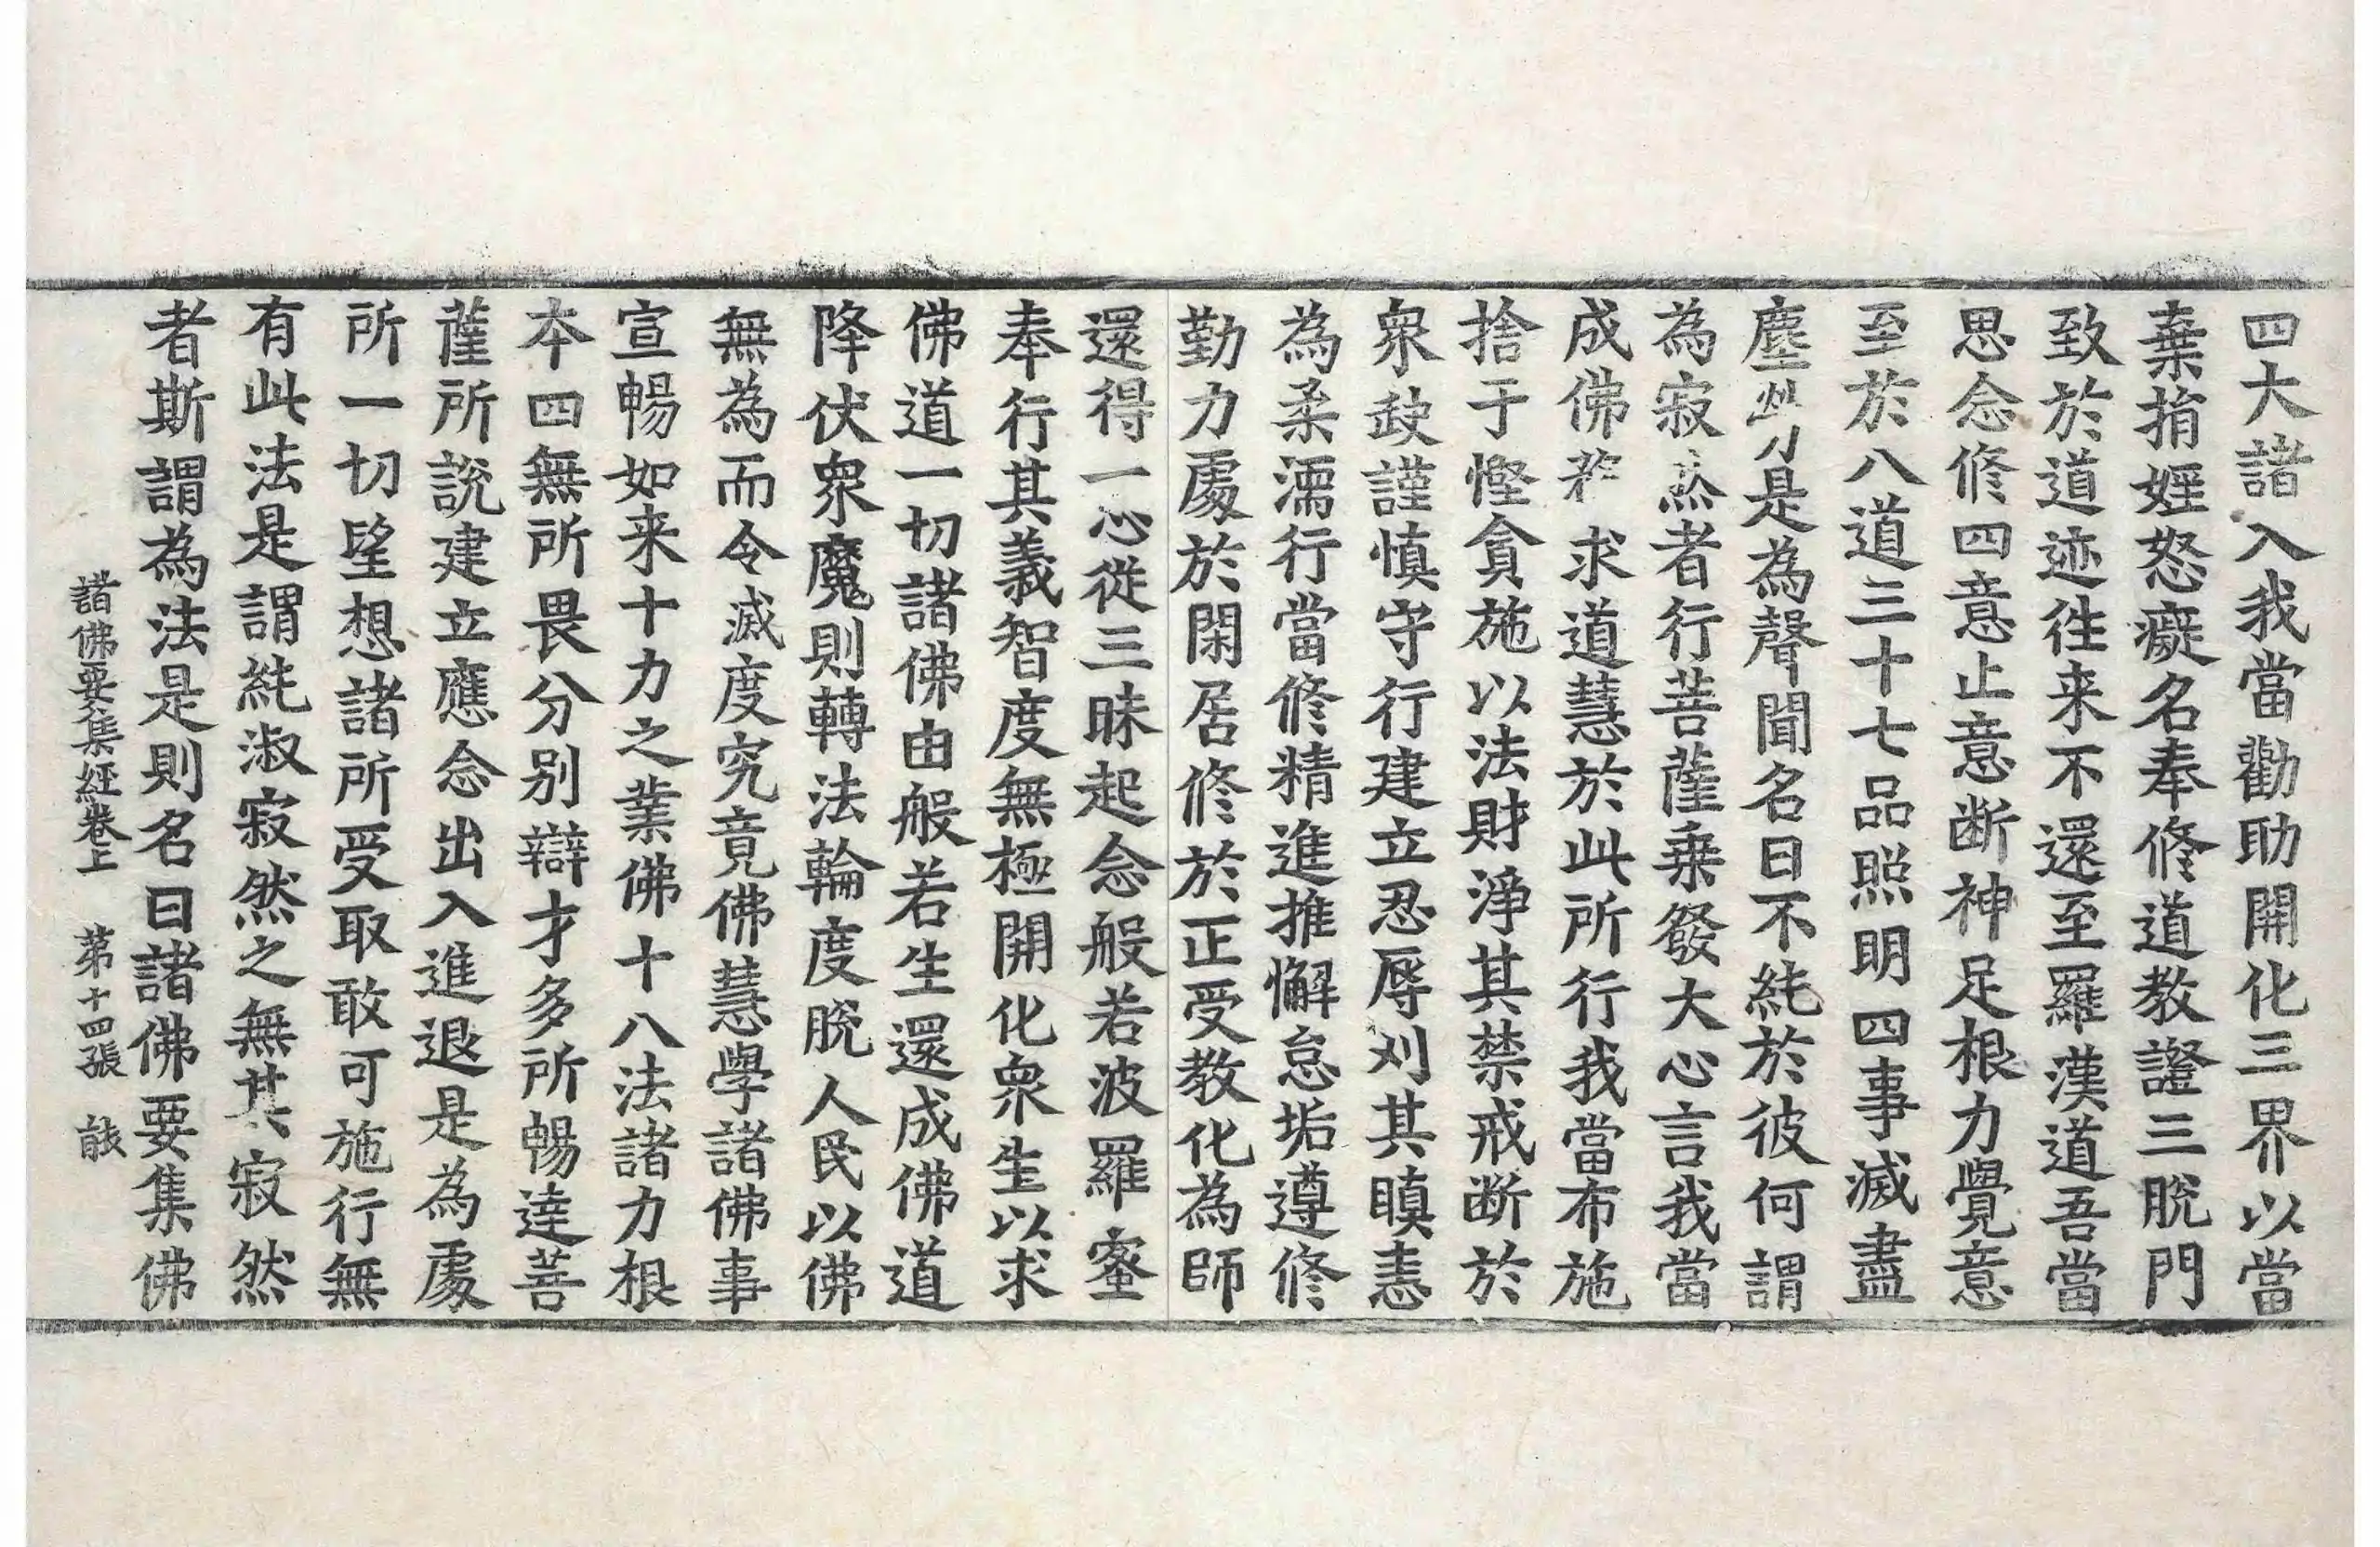 四大諸入我當勸助開化三界以當
棄捐婬怒癡名奉修道教證三脫門
致於道迹往来不還至羅漢道吾當
思念修四意止意断神足根力覺意
至於八道三十七品照明四事滅盡
塵勞是為聲聞名曰不純於彼何謂
為寂然者行菩薩乗發大心言我當
成佛 求道慧於此所行我當布施
捨于慳貪施以法財淨其禁戒断於
衆 謹慎守行建立忍辱刈其瞋恚
為柔濡行當修精進推懈怠垢遵修
勤力處於閑居修於正受教化為師
還得一心從三昧起念般若波羅蜜
奉行其義智度無極開化衆生以求
佛道一切諸佛由般若生還成佛道
降伏衆魔則轉法輪度脫人民以佛
無為而令滅度究竟佛慧學諸佛事
宣暢如来十力之業佛十八法諸力根
本四無所畏分别辯才多所暢達菩
薩所說建立應念出入進退是為處
所一切望想諸所受取敢可施行無
有此法是謂純淑寂然之無其寂然
者斯謂為法是則名曰諸佛要集佛
諸佛要集經卷上　第十四張